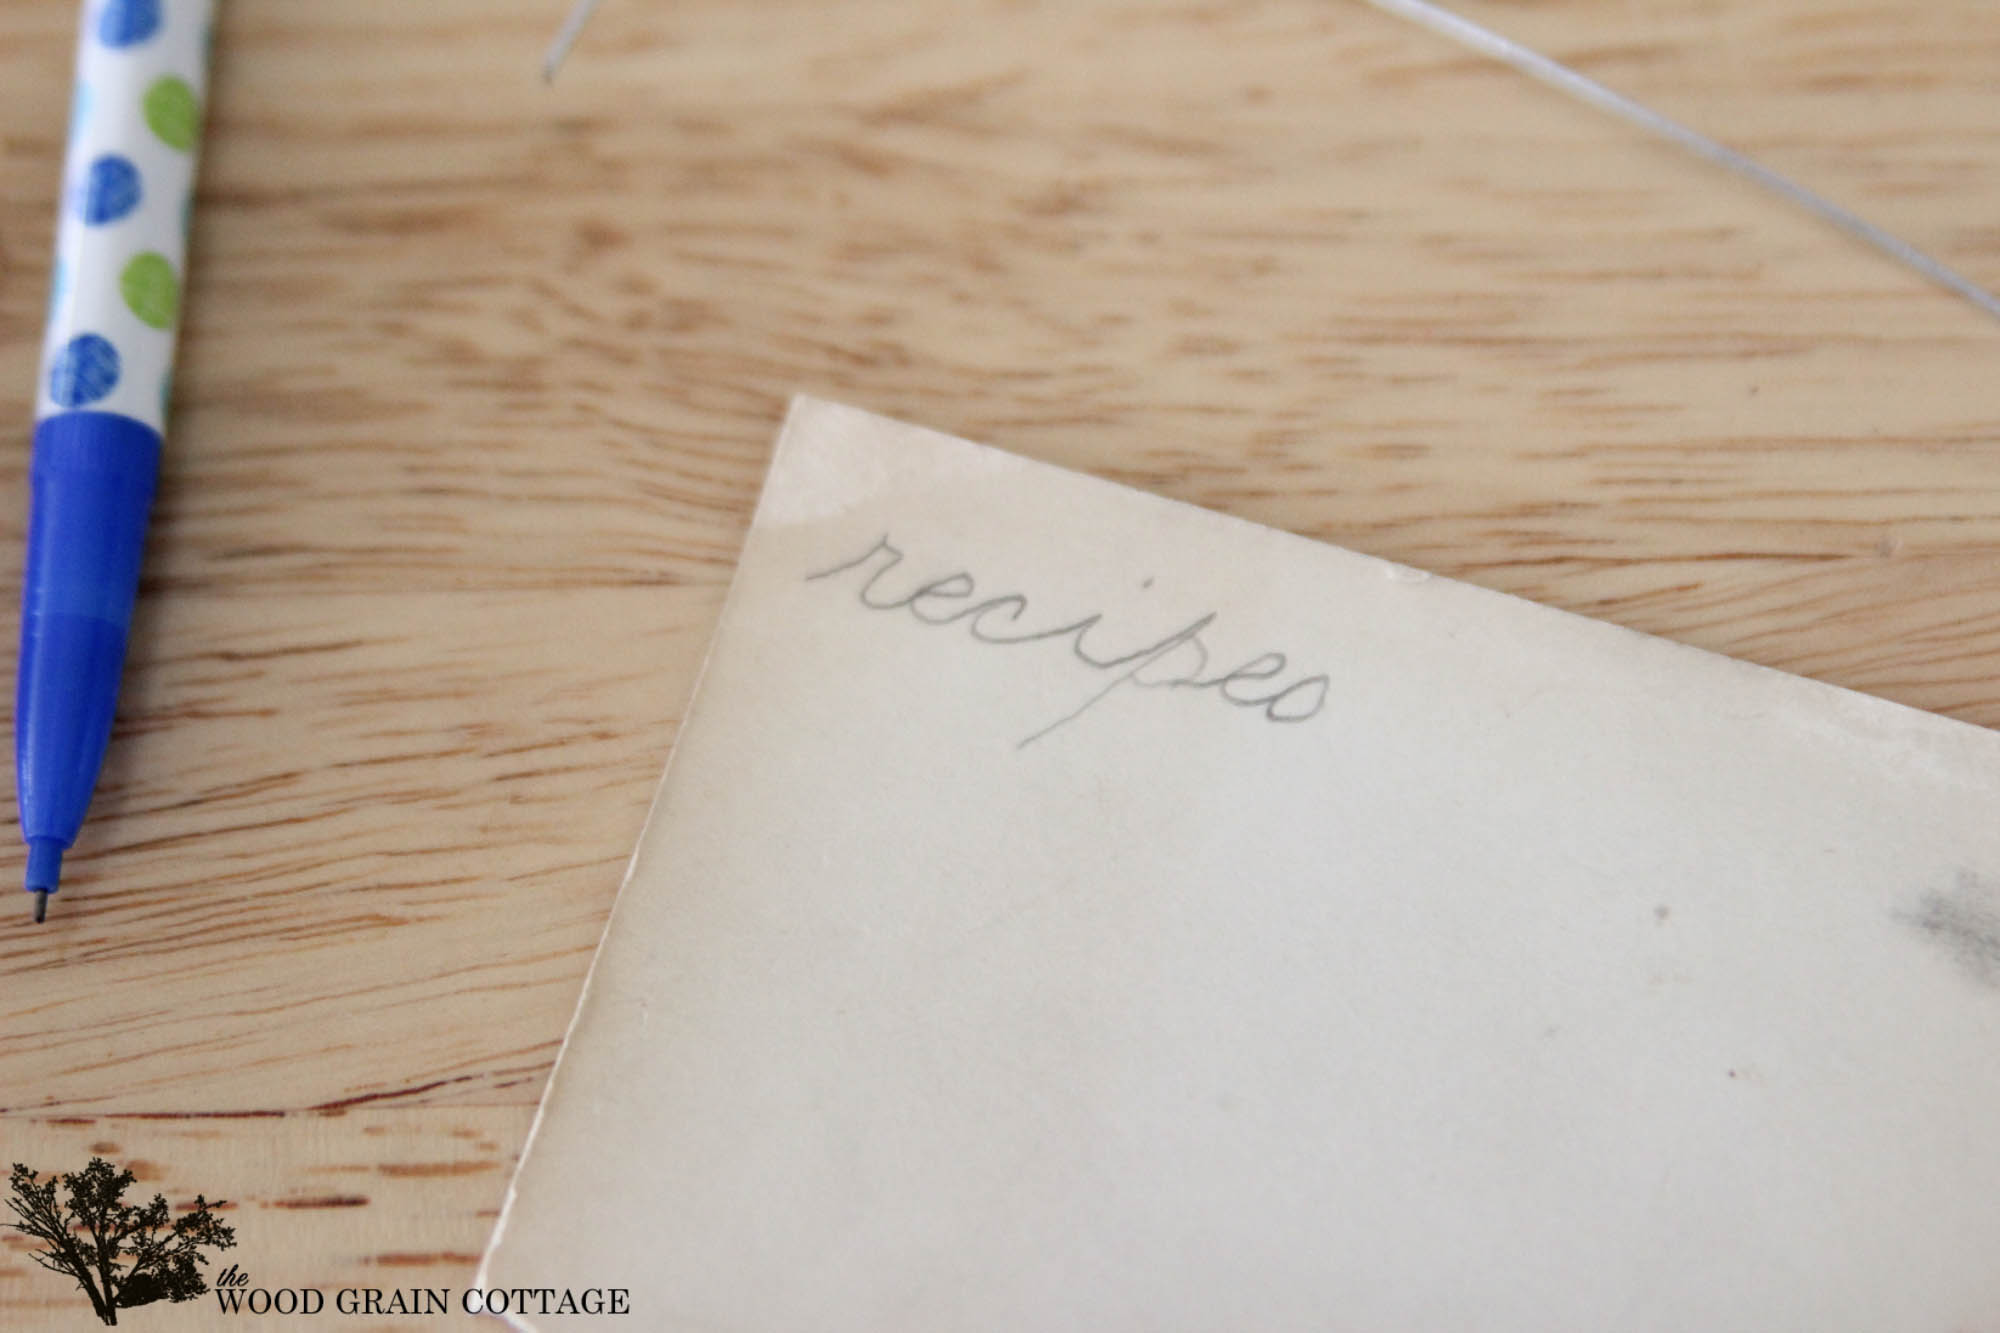 recipes
the
WOOD GRAIN COTTAGE